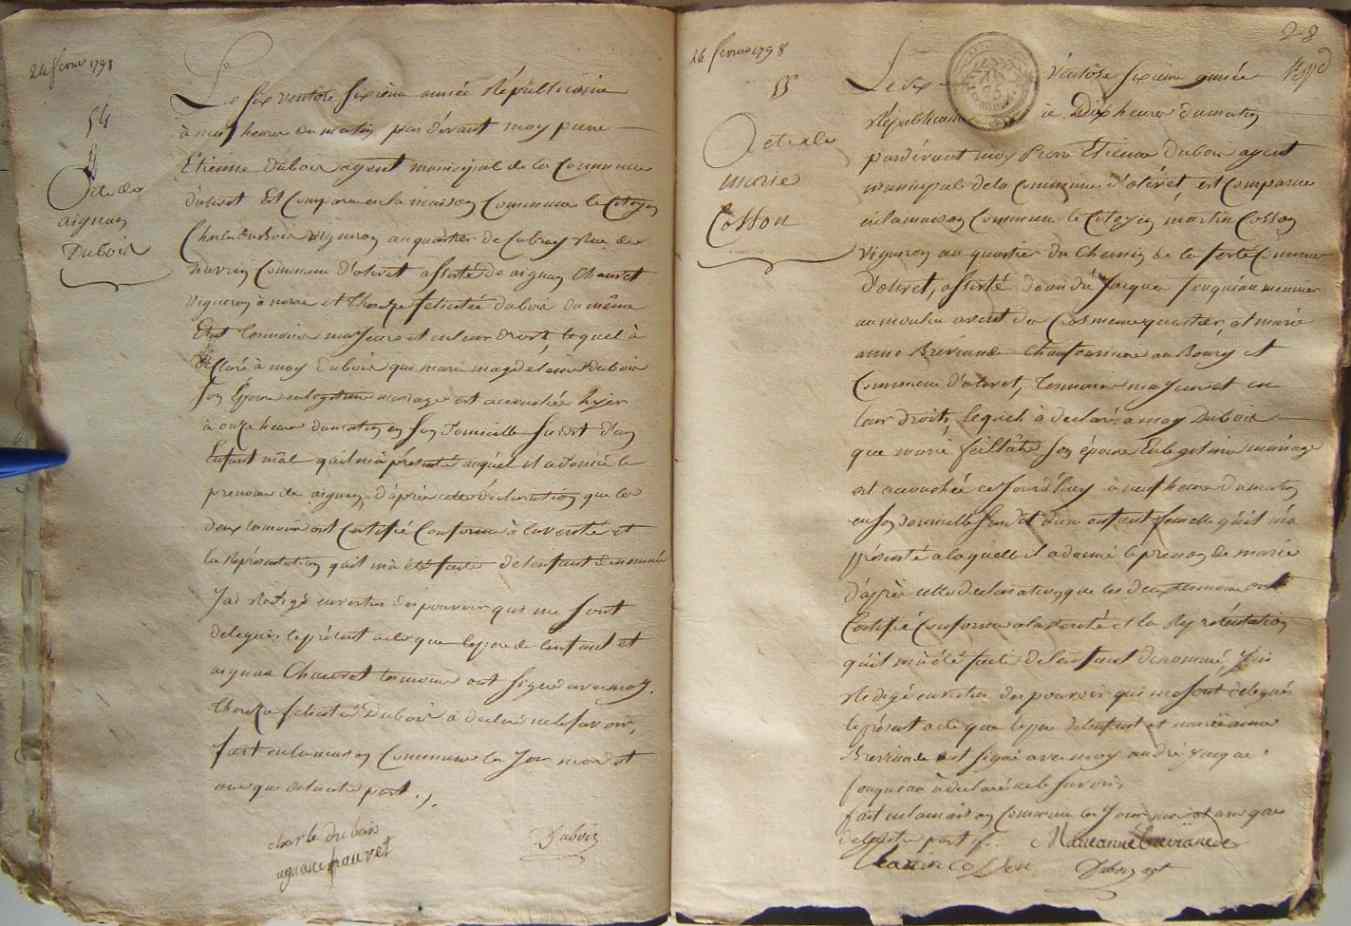 24 fevrier 1798
54
Acte de
aignan
Dubois
Le six ventose sixieme année Républicaine
à neuf heures du matin par devant moy pierre
Etienne dubois agent municipal de la Commune
d'olivet Est Comparu en la maison Commune le Citoyen
Charle Dubois vigneron au quartier de rue de
Commune d'olivet assisté de aignan Chauvet
vigneron à et félicitée dubois du même
Etat temoins majeurs et en leur droit, lequel à
déclaré à moy Dubois que marie magdeleine Dubois
Son Epouse en legitime mariage est accouchée hyer
à onze heures du matin en Son Domicille Sudit d'un
Enfant mâl qu'il m'a présenté auquel il a donné le
prenom de aignan, d'après cette déclaration que les
deux temoins ont Certifié Conforme à la verité et
la Représentation qu'il m'a été faite de l'enfant dénommé
J'ai Redigé en vertu des pouvoirs qui me Sont
delegués le présent acte que le pere de l'enfant et
aignan Chauvet temoins ont Signé avec moy.
félicitée Dubois à déclaré ne le Savoir,
fait en la maison Commune les Jour mois et
an que de l'autre part ./.
charle dubois
aignan chauvet
Dubois
24 fevrier 1798
55
Acte de
marie
Cosson
28
Le six ventose sixieme année
Républicaine à Dix heures du matin
pardevant moy Pierre Etienne Dubois agent
municipal de la Commune d'olivet est Comparu
en la maison Commune le Citoyen martin Cosson
Vigneron au quartier du Chemin de la ferté Commune
d'olivet, assisté de andré Jacque fougneau meunier
au moulin du quartier, et marie
anne Breviande au Bourg et
Commune d'olivet, temoins majeurs et en
leur droits, lequel à declaré à moy Dubois
que marie Son épouse En legitime mariage
est accouchée ce Jourd'huy à neuf heures du matin
en Son domicille Susdit d'un enfant femelle qu'il m'a
présenté a laquelle il a donné le prenom de marie
d'après cette declaration que les deux temoins ont
Certifié Conforme a la verité et la Représentation
qu'il m'a été faite de l'enfant denommé, J'ai
Redigé en vertu des pouvoirs qui me Sont delegués
le présent acte que le pere de l'enfant et marie anne
Breviande ont Signé avec moy andré Jacque
fougneau à declaré ne le Savoir,
fait en la maison Commune les Jour mois et an que
de l'autre part ./. Marieanne breviande
martin Cosson Dubois agt